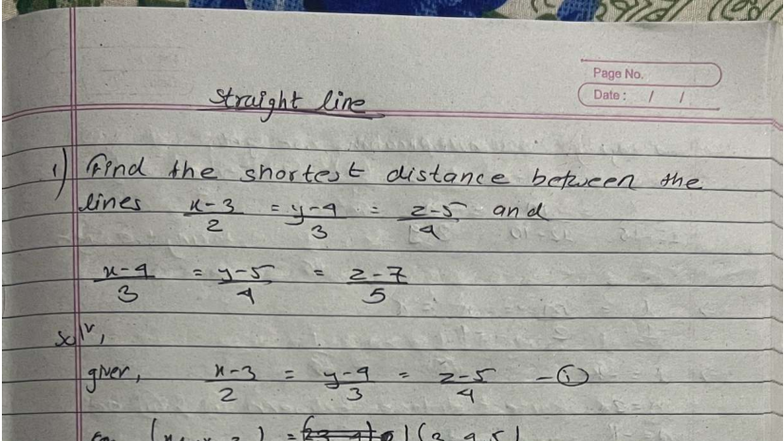 Page No.
Date : / /
straight line
1) Find the shortest distance between the
lines x-3/2 = y-4/3 = z-5/4 and
x-4/3 = y-5/4 = z-7/5
solⁿ,
given, x-3/2 = y-4/3 = z-5/4 - ①
(3 4 5)